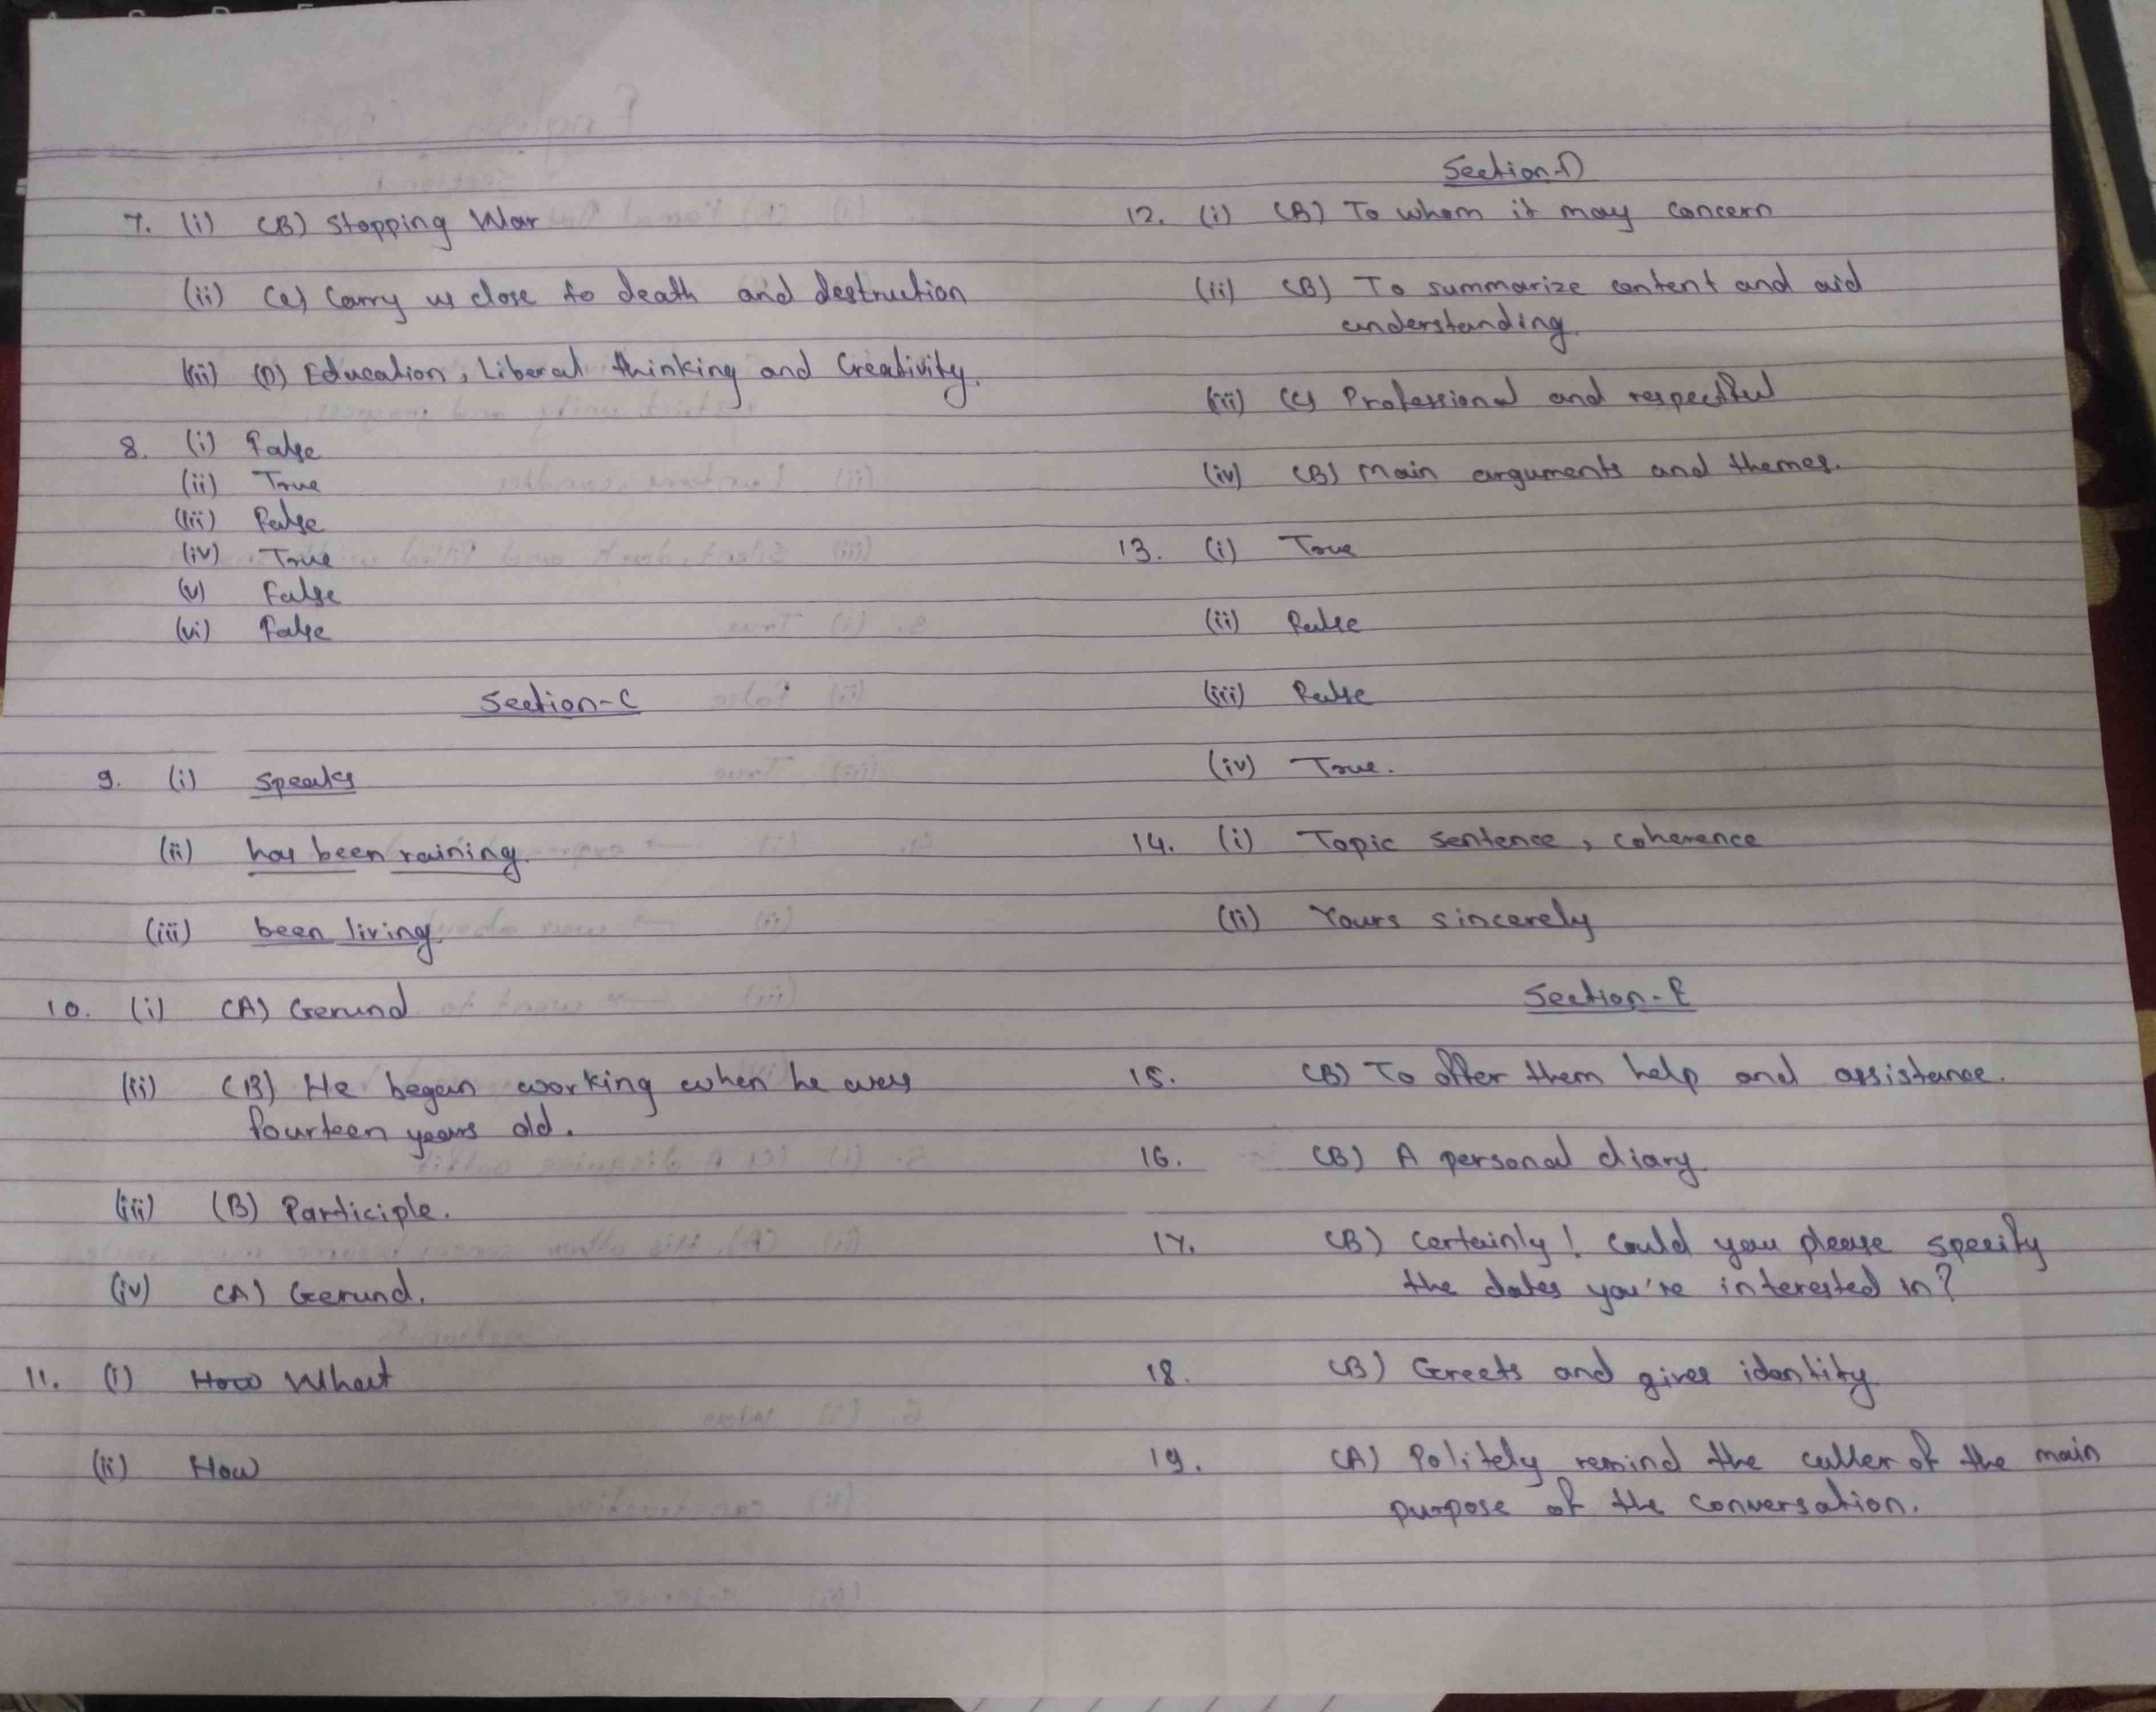 7. (i) (B) Stopping War
(ii) (C) Carry us close to death and destruction
(iii) (D) Education, Liberal thinking and Creativity.
8. (i) False
(ii) True
(iii) False
(iv) True
(v) False
(vi) False
Section-C
9. (i) speaks
(ii) has been raining.
(iii) been living.
10. (i) (A) Gerund
(ii) (B) He began working when he was
fourteen years old.
(iii) (B) Participle.
(iv) (A) Gerund.
11. (i) How What
(ii) How
Section-D
12. (i) (B) To whom it may concern
(ii) (B) To summarize content and aid
understanding.
(iii) (C) Professional and respectful
(iv) (B) Main arguments and themes.
13. (i) True
(ii) False
(iii) False
(iv) True.
14. (i) Topic sentence, coherence
(ii) Yours sincerely
Section-E
15. (B) To offer them help and assistance.
16. (B) A personal diary.
17. (B) Certainly! Could you please specify
the dates you're interested in?
18. (B) Greets and gives identity
19. (A) Politely remind the caller of the main
purpose of the conversation.